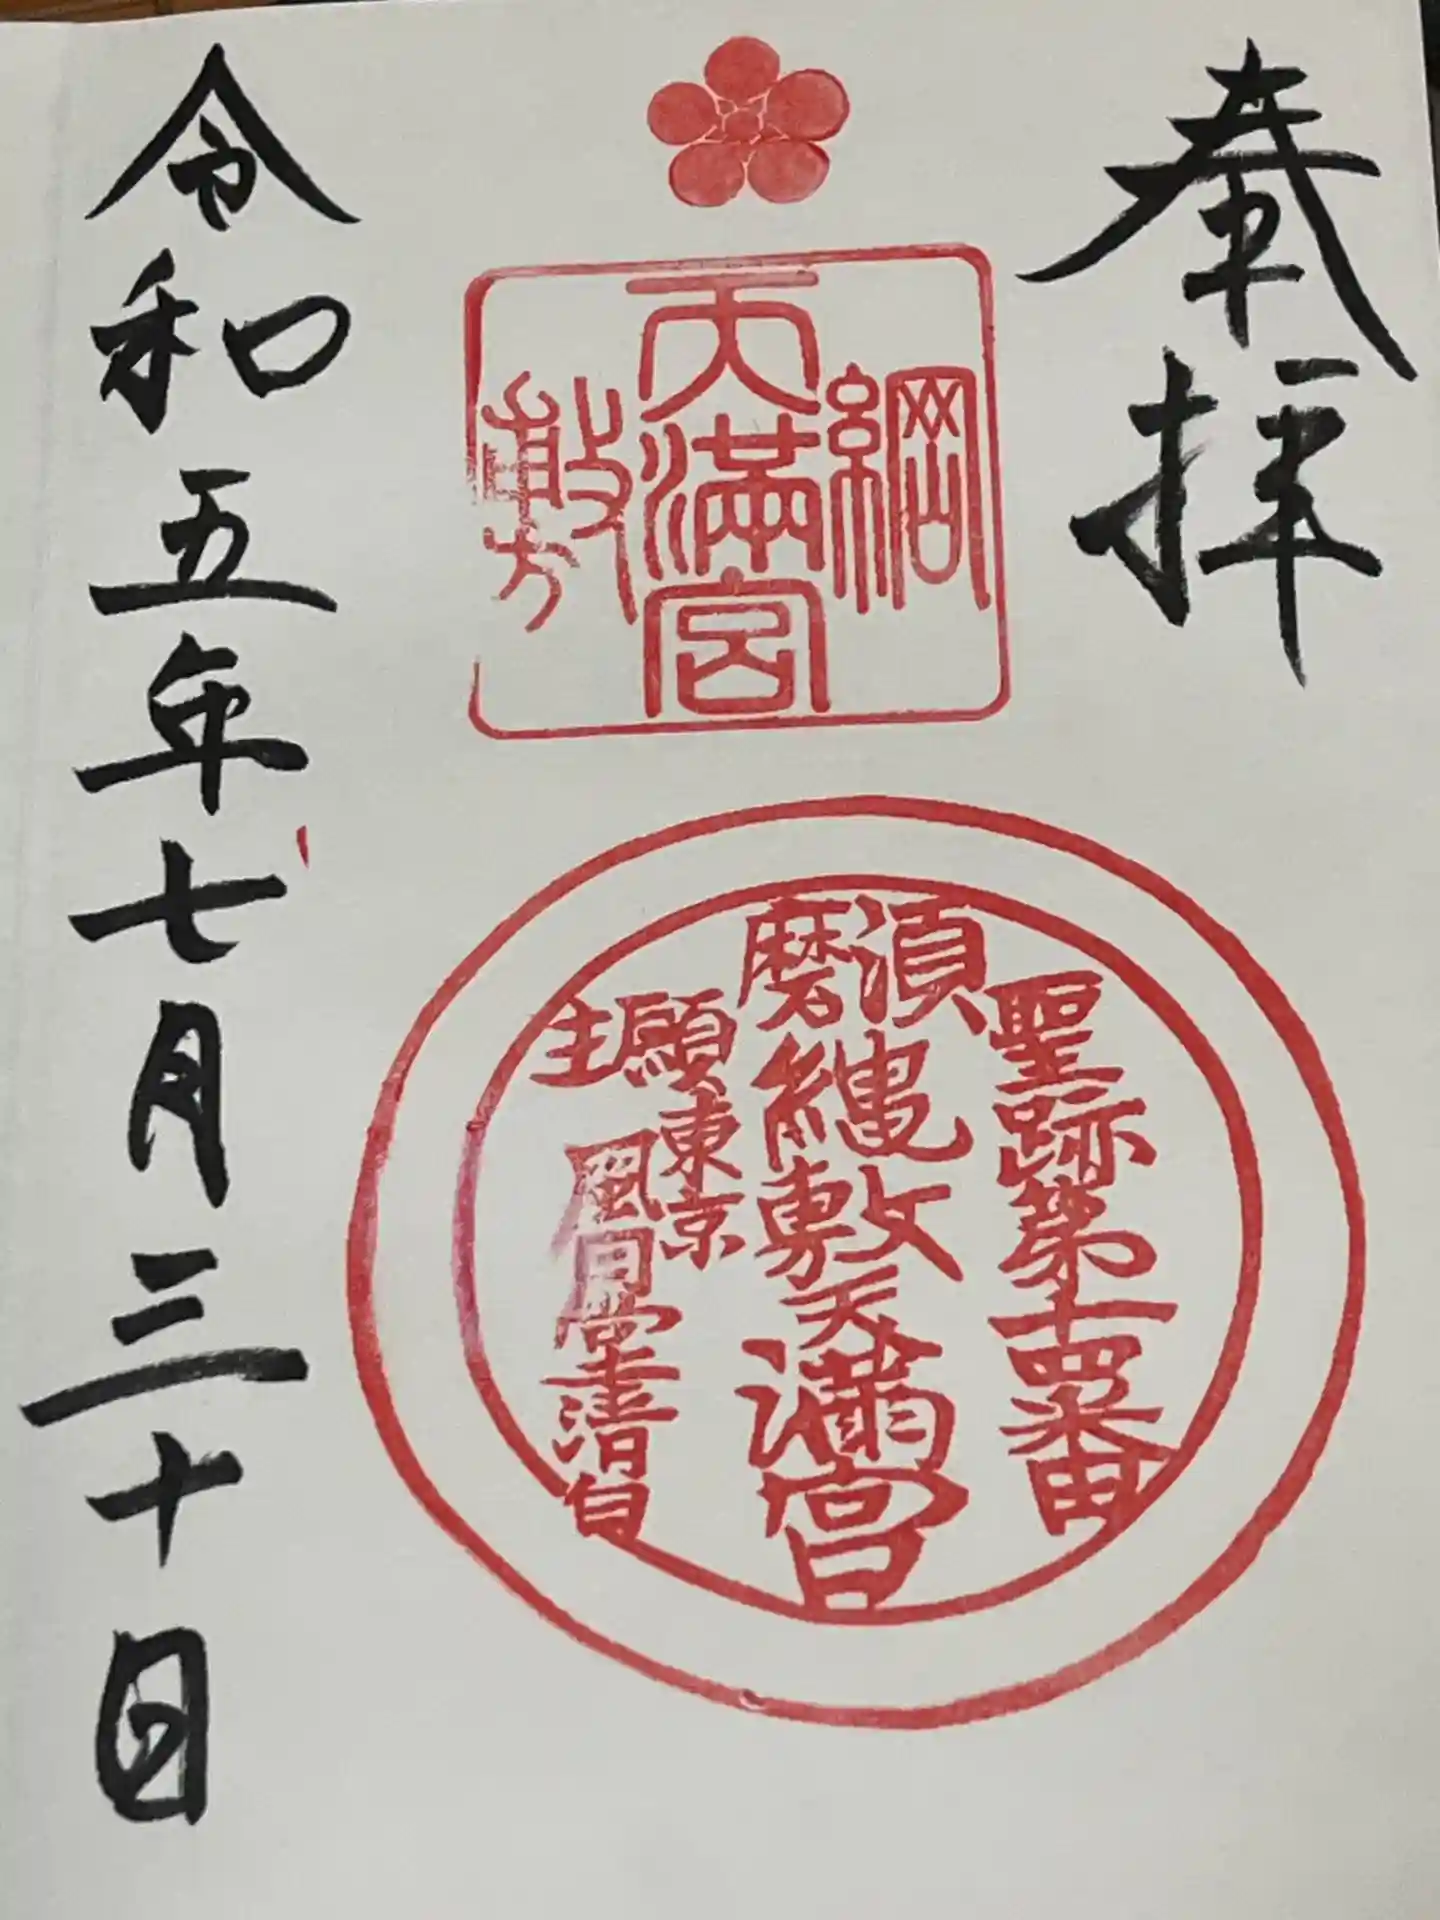 奉拝
綱
天満宮
敷
聖跡第十四番
須磨
縄敷天満宮
願主
東京
風月堂清白
令和五年七月三十日